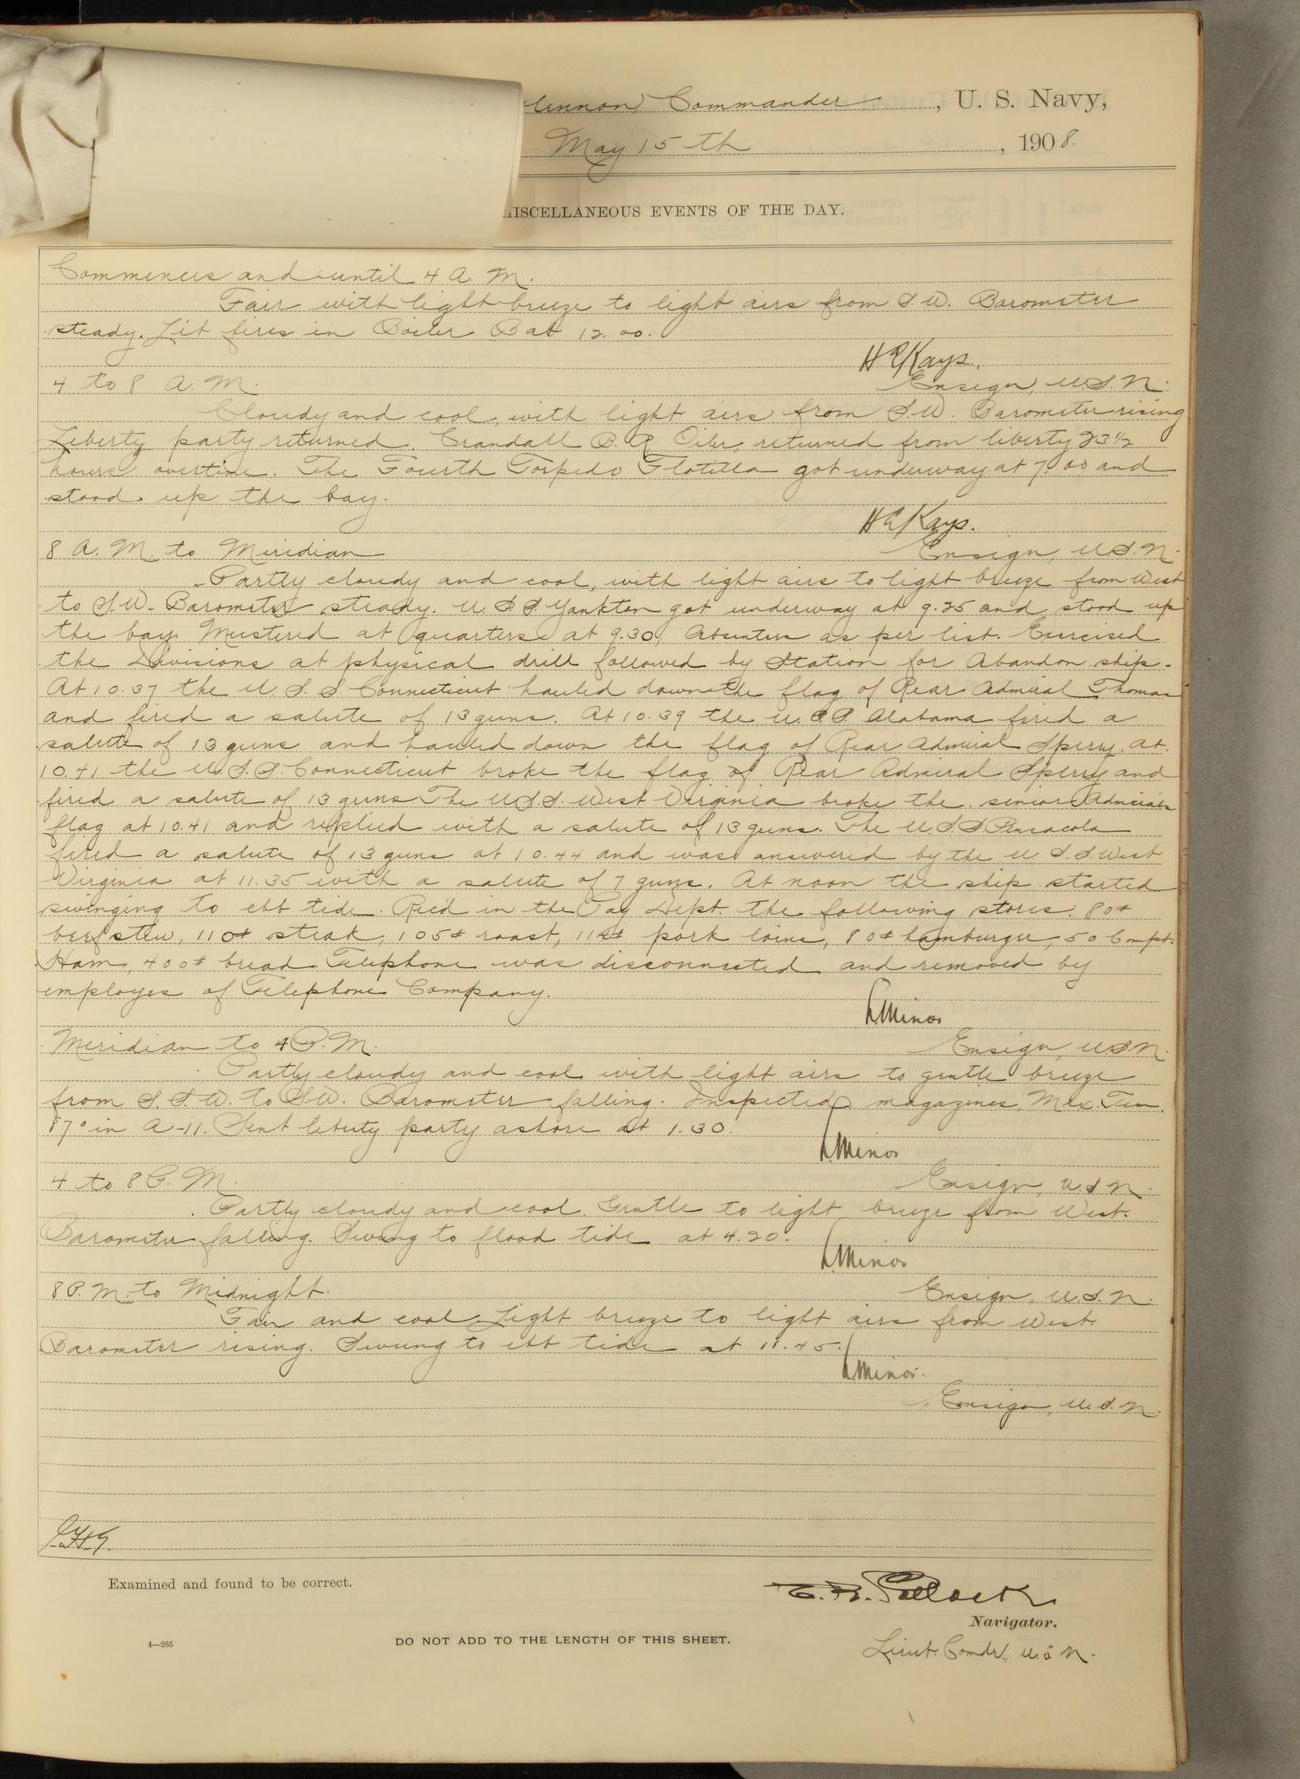 Commander, U. S. Navy,
May 15th, 1908.
MISCELLANEOUS EVENTS OF THE DAY.
Commences and until 4 A. M.
Fair with light breeze to light airs from S.W. Barometer
steady. Lit fires in Boiler B at 12.00.
H E Kays.
4 to 8 A. M. Ensign, U.S.N.
Cloudy and cool, with light airs from S.W. Barometer rising
Liberty party returned. Crandall B. R Oiler, returned from liberty 23 1/2
hours overtime. The Fourth Torpedo Flotilla got underway at 7.00 and
stood up the bay.
H E Kays.
8 A. M. to Meridian Ensign, U.S.N.
Partly cloudy and cool, with light airs to light breeze from West
to S.W. Barometer steady. U.S.S. Yankton got underway at 9.25 and stood up
the bay. Mustered at quarters at 9.30, Absentees as per list. Exercised
the Divisions at physical drill followed by Station for Abandon ship.
At 10.37 the U.S.S. Connecticut hauled down the flag of Rear Admiral Thomas
and fired a salute of 13 guns. At 10.39 the U.S.S. Alabama fired a
salute of 13 guns and hauled down the flag of Rear Admiral Sperry. At
10.41 the U.S.S. Connecticut broke the flag of Rear Admiral Sperry and
fired a salute of 13 guns The U.S.S. West Virginia broke the senior Admirals
flag at 10.41 and replied with a salute of 13 guns. The U.S.S. Pensacola
fired a salute of 13 guns at 10.44 and was answered by the U.S.S. West
Virginia at 11.35 with a salute of 7 guns. At noon the ship started
swinging to ebb tide. Rec'd in the Pay Dept. the following stores: 80#
beef stew, 110# steak, 105# roast, pork loins, 80# hamburger, 50
Ham, 400# bread. Telephone was disconnected and removed by
employes of Telephone Company.
L. Minor
Meridian to 4 P. M. Ensign, U.S.N.
Partly cloudy and cool with light airs to gentle breeze
from S.S.W. to S.W. Barometer falling. Inspected magazines. Max. Tem.
87° in A-11. Sent liberty party ashore at 1.30.
L. Minor
4 to 8 P. M. Ensign, U.S.N.
Partly cloudy and cool. Gentle to light breeze from West.
Barometer falling. Swung to flood tide at 4.20.
L. Minor
8 P. M. to Midnight. Ensign, U.S.N.
Fair and cool. Light breeze to light airs from West
Barometer rising. Swung to ebb tide at 11.45.
L. Minor.
Ensign, U.S.N.
Examined and found to be correct.
Navigator.
4—265
DO NOT ADD TO THE LENGTH OF THIS SHEET.
Lieut. Comdr., U.S.N.